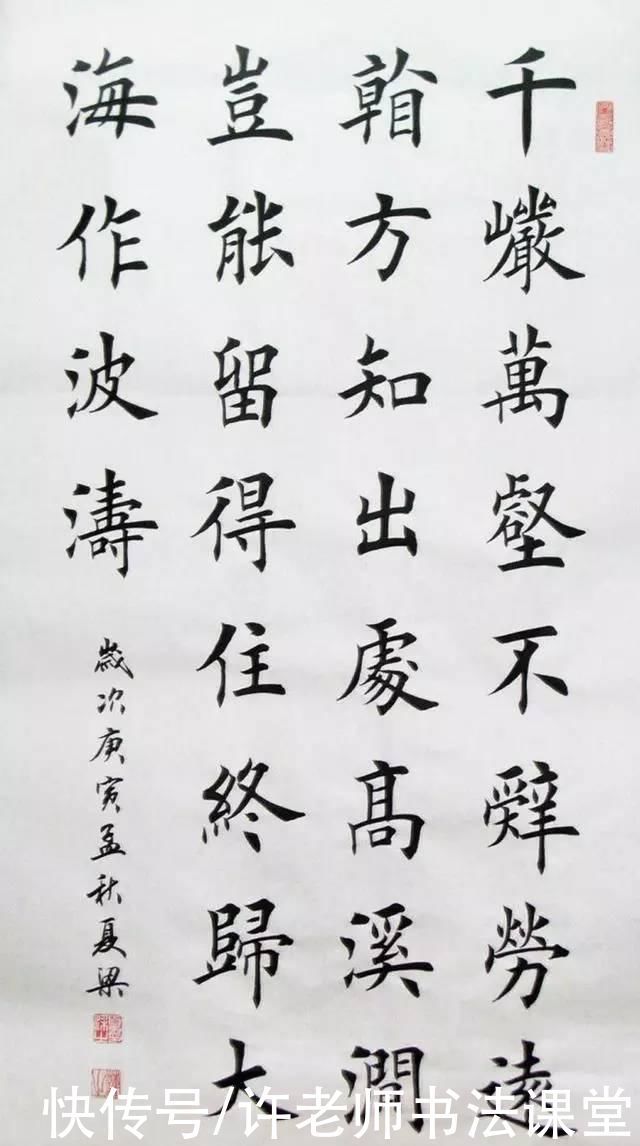 千巖萬壑不辭勞遠
看方知出處髙溪澗
豈能留得住終歸大
海作波濤
歲次庚寅孟秋夏梁
快传号/许老师书法课堂